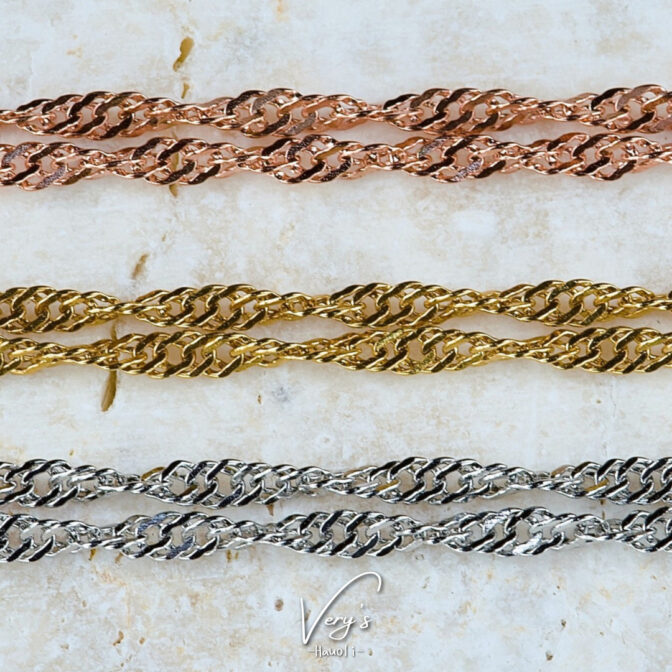 Very's
-Hauoli-